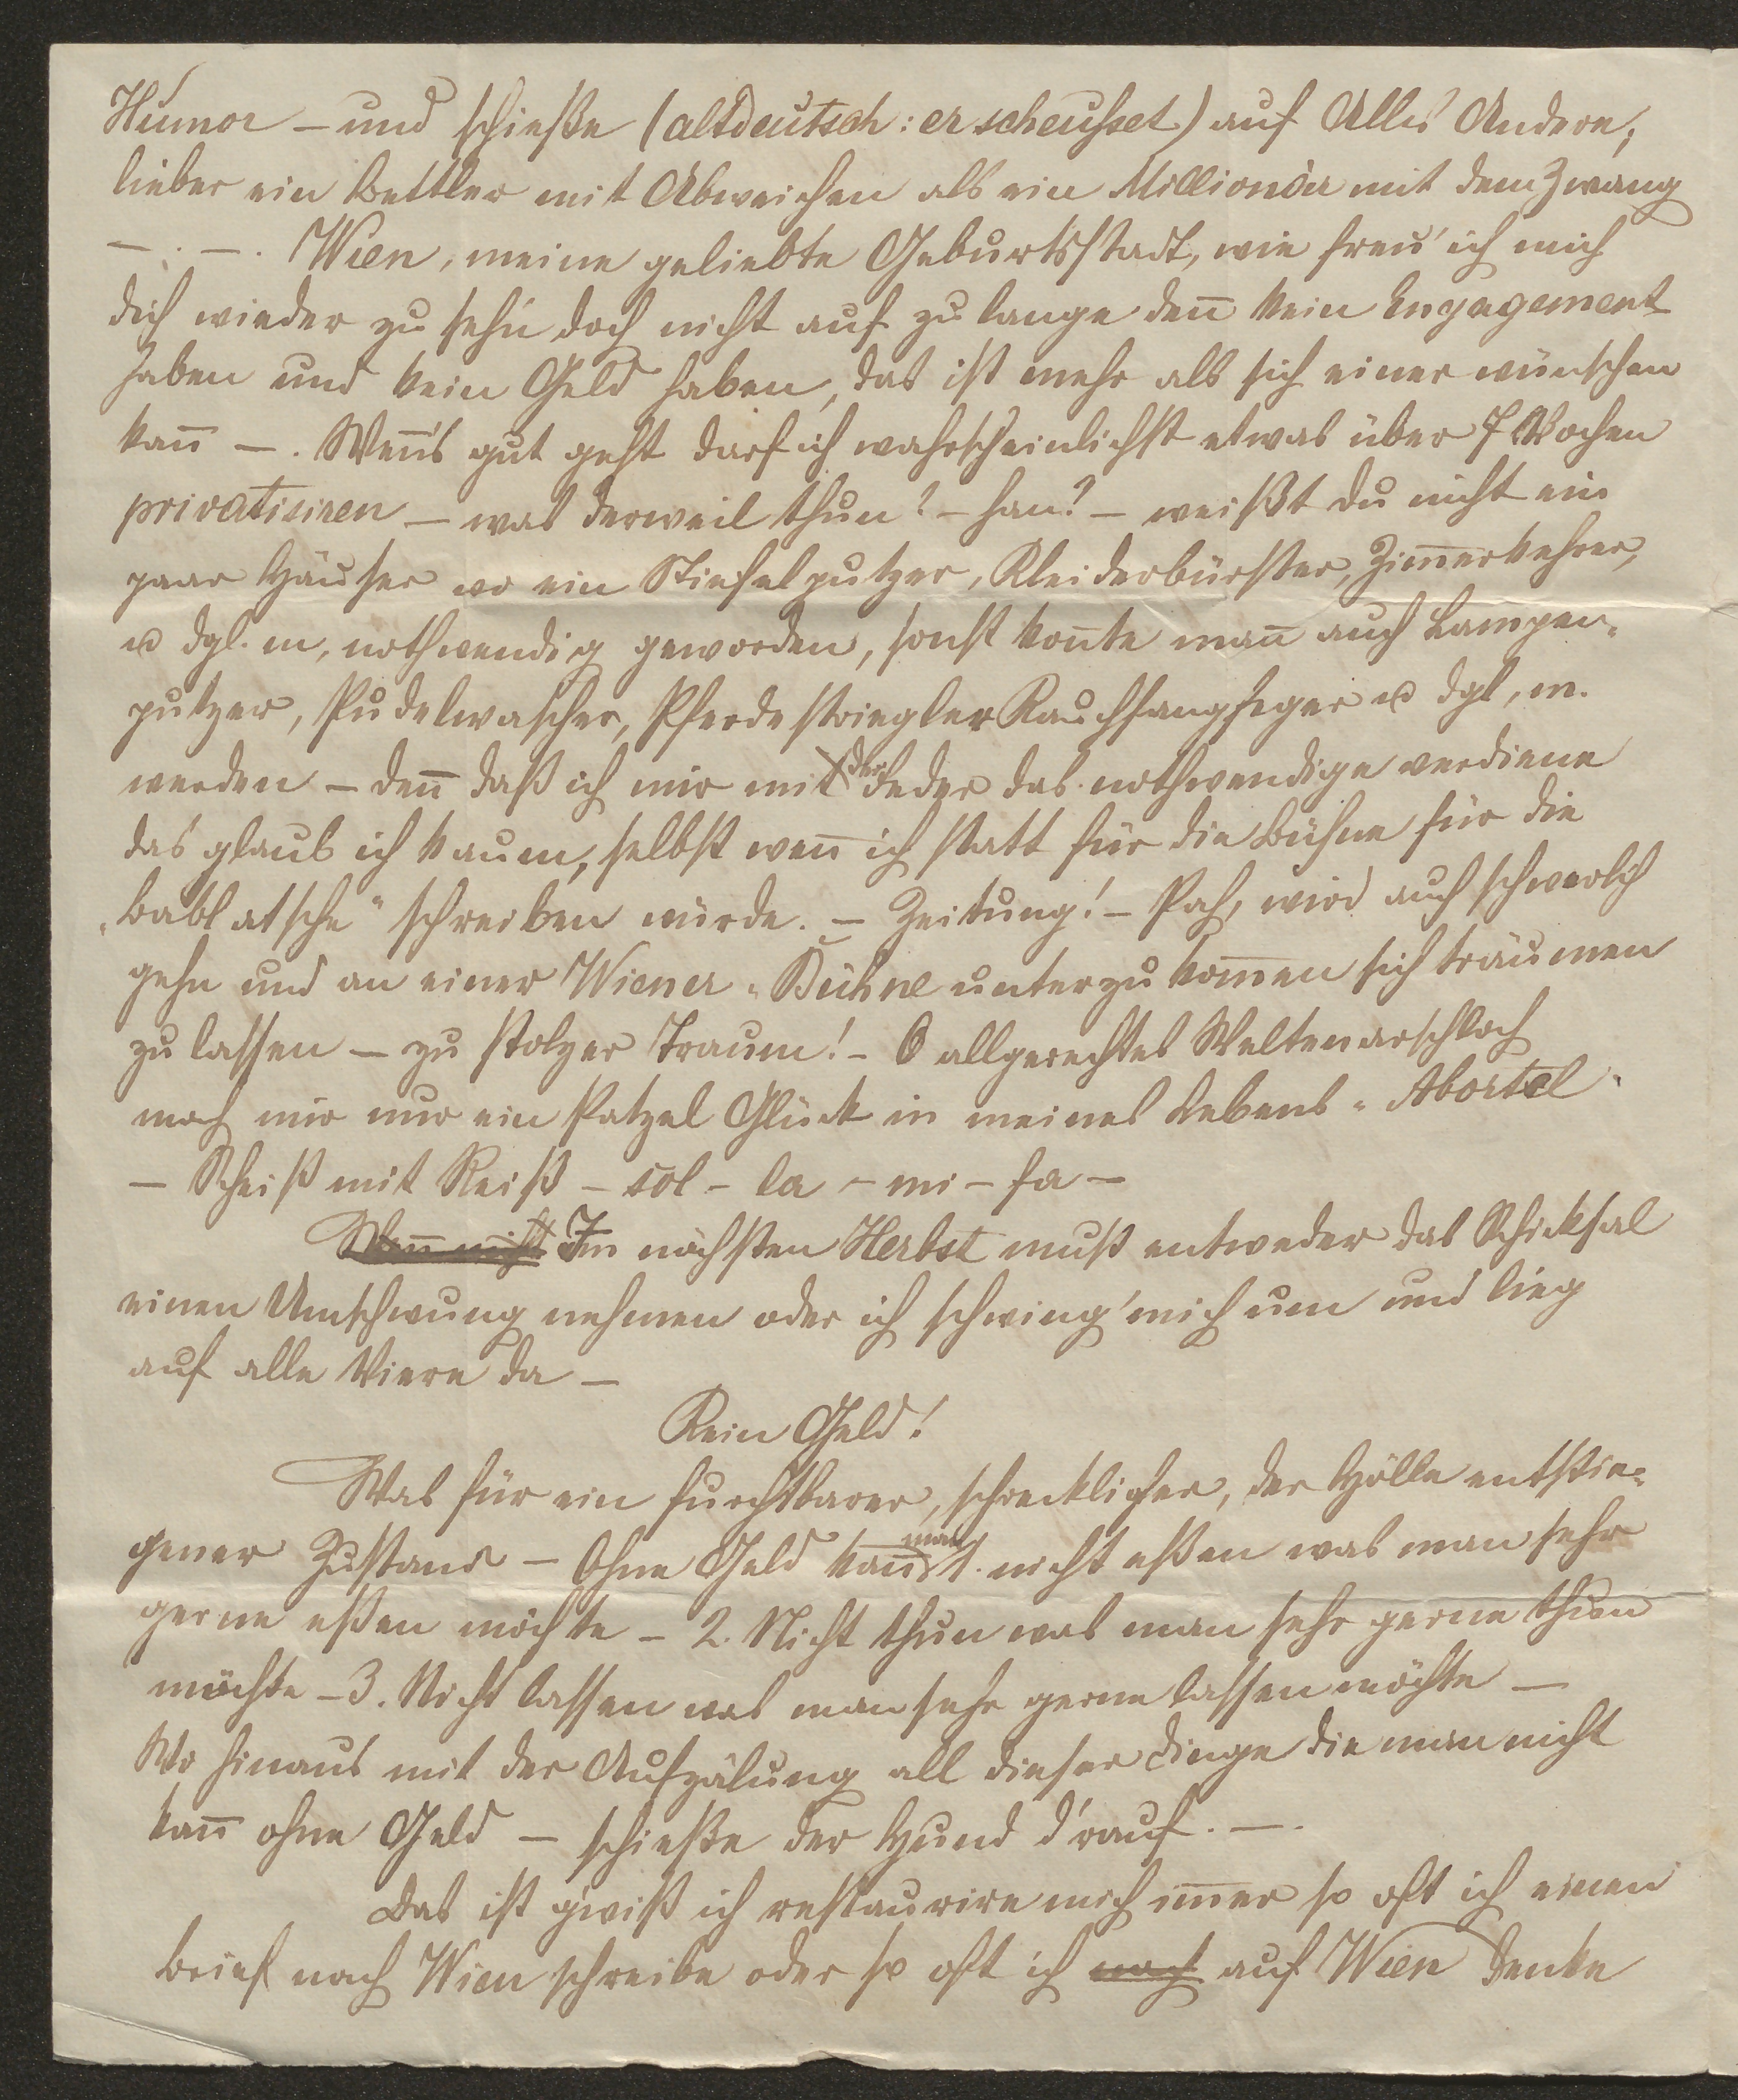 Humor – und schieße (altdeutsch: er scheusset) auf Alles Andere,
lieber ein Bettler mit Abweichen als ein Millionär mit dem Zwang
– . – . Wien, meine geliebte Geburtsstadt, wie freu' ich mich
dich wieder zu seh'n doch nicht auf zu lange den̄ kein Engagement
haben und kein Geld haben, das ist mehr als sich einer wünschen
kan̄ – . Wen̄'s gut geht darf ich wahrscheinlichst etwas über 7 Wochen
privatisiren – was derweil thun? – han? – weißt du nicht ein
paar Häuser wo ein Stiefelputzer, Kleiderbürster, Zim̄erkehrer,
u dgl. m, nothwendig geworden, sonst kön̄te man auch Lampen-
putzer, Pudelwascher, Pferdestriegler Rauchfangfeger u dgl, m.
werden – den̄ daß ich mir mit der Feder das nothwendige verdiene
das glaub ich kaum, selbst wen̄ ich statt für die Bühne für die
„Bablatsche" schreiben würde. – Zeitung! – Pah, wird auch schwerlich
gehn und an einer Wiener-Bühne unterzukom̄en sich träumen
zu lassen – zu stolzer Traum! – O allgerechtes Weltenarschloch
mach mir nur ein Patzel Glück in meines Lebens-Abortel
– Scheiß mit Reiß – sol – la – mi – fa –
Wen̄ nicht Im nächsten Herbst muß entweder das Schicksal
einen Umschwung nehmen oder ich schwing' mich um und lieg
auf alle Viere da –
Kein Geld!
Was für ein furchtbarer, schrecklicher, der Hölle entstie-
gener Zustand – Ohne Geld kan̄ man 1. nicht eßen was man sehr
gerne eßen möchte – 2. Nicht thun was man sehr gerne thun
möchte – 3. Nicht lassen was man sehr gerne lassen möchte –
Wo hinaus mit der Aufzälung all dieser Dinge die man nicht
kan̄ ohne Geld – schieße der Hund d'rauf. – .
Das ist g'wiß ich restaurire mich im̄er so oft ich einen
Brief nach Wien schreibe oder so oft ich nach auf Wien denke